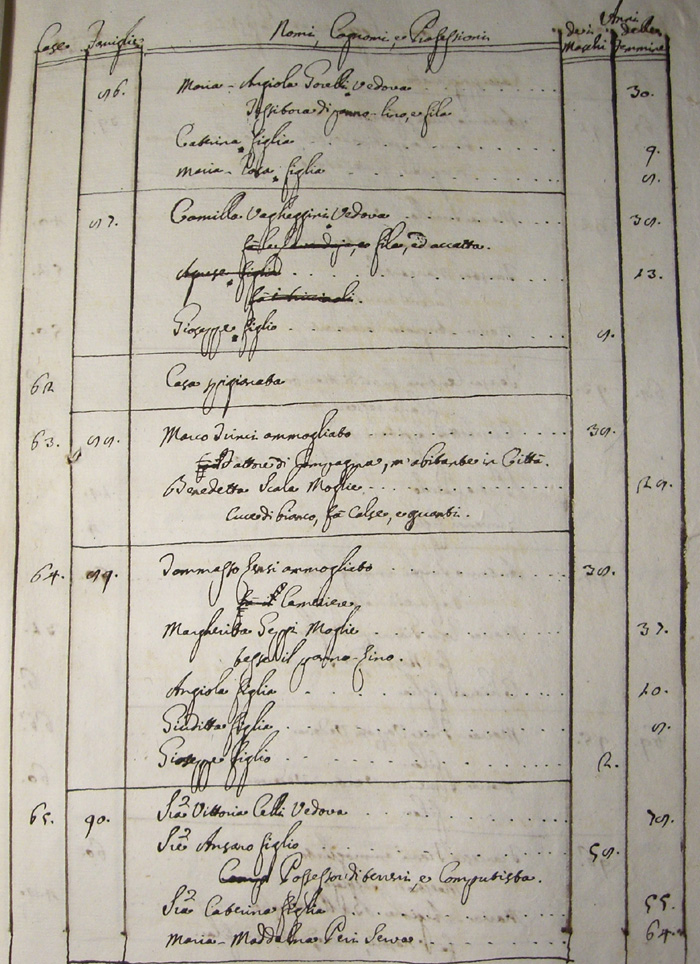 Case Famiglie Nomi, Cognomi, e Professioni Anni
dei Maschi delle Femmine
86. Maria-Angiola Vedova 30.
Tessitora di panno-lino, e fila
Caterina figlia 9.
Maria-Rosa figlia
87. Camilla Vagheggini Vedova
e fila, ed accatta.
Agnese figlia 13.
Giuseppe figlio
62 Casa spigionata
63. 88. Marco Vinci ammogliato 38.
Fattore di Campagna, m'abitante in Città.
Benedetta Scala Moglie
Cuce di bianco, fà Calse, e guanti.
64. 89. Tommasso Sensi ammogliato 38.
fà il Cameriere
Margherita Geppi Moglie 37.
tesse il panno-lino.
Angiola figlia 10.
Giuditta figlia
Giuseppe figlio 2.
65. 90. Sig.ra Vittoria Celli Vedova
Sig.re Ansano figlio
Possessor di terreni, e Computista.
Sig.ra Caterina figlia 55.
Maria-Maddalena Peri Serva 64.